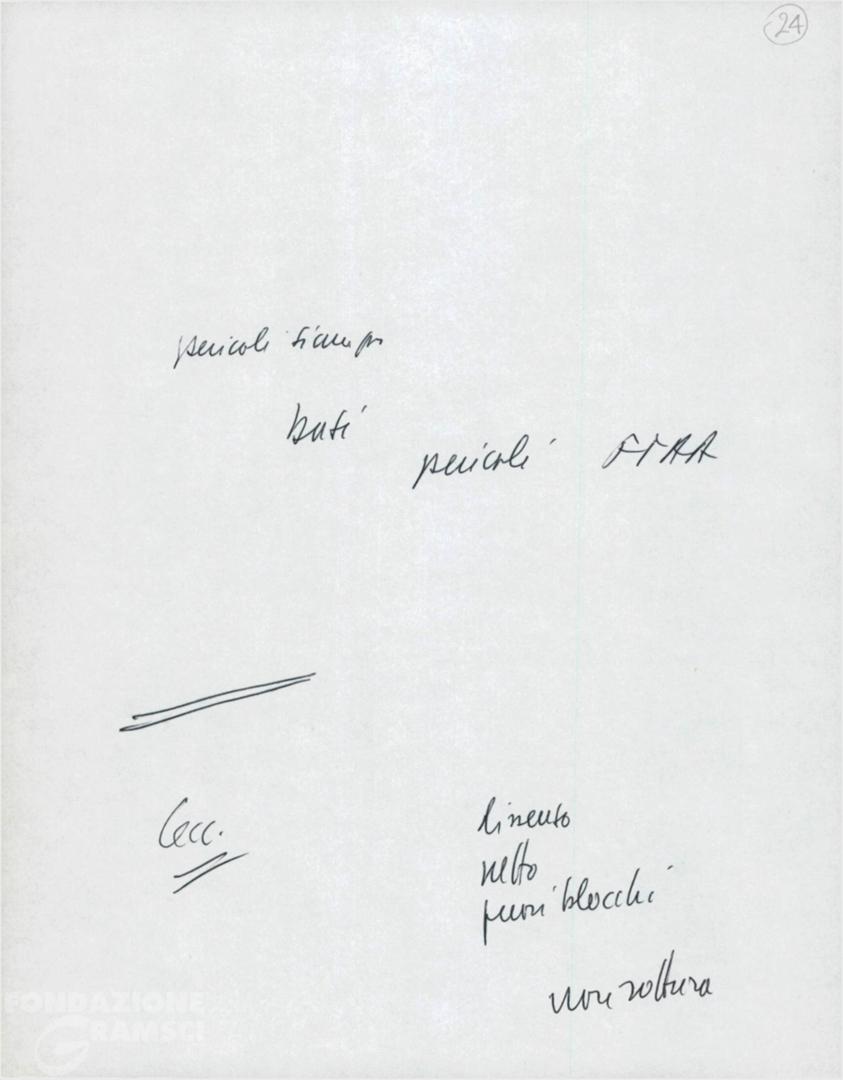 24
pericoli
basi
pericoli FFAA
Cecc.
dissenso
netto
fuori blocchi
non rottura
FONDAZIONE
GRAMSCI